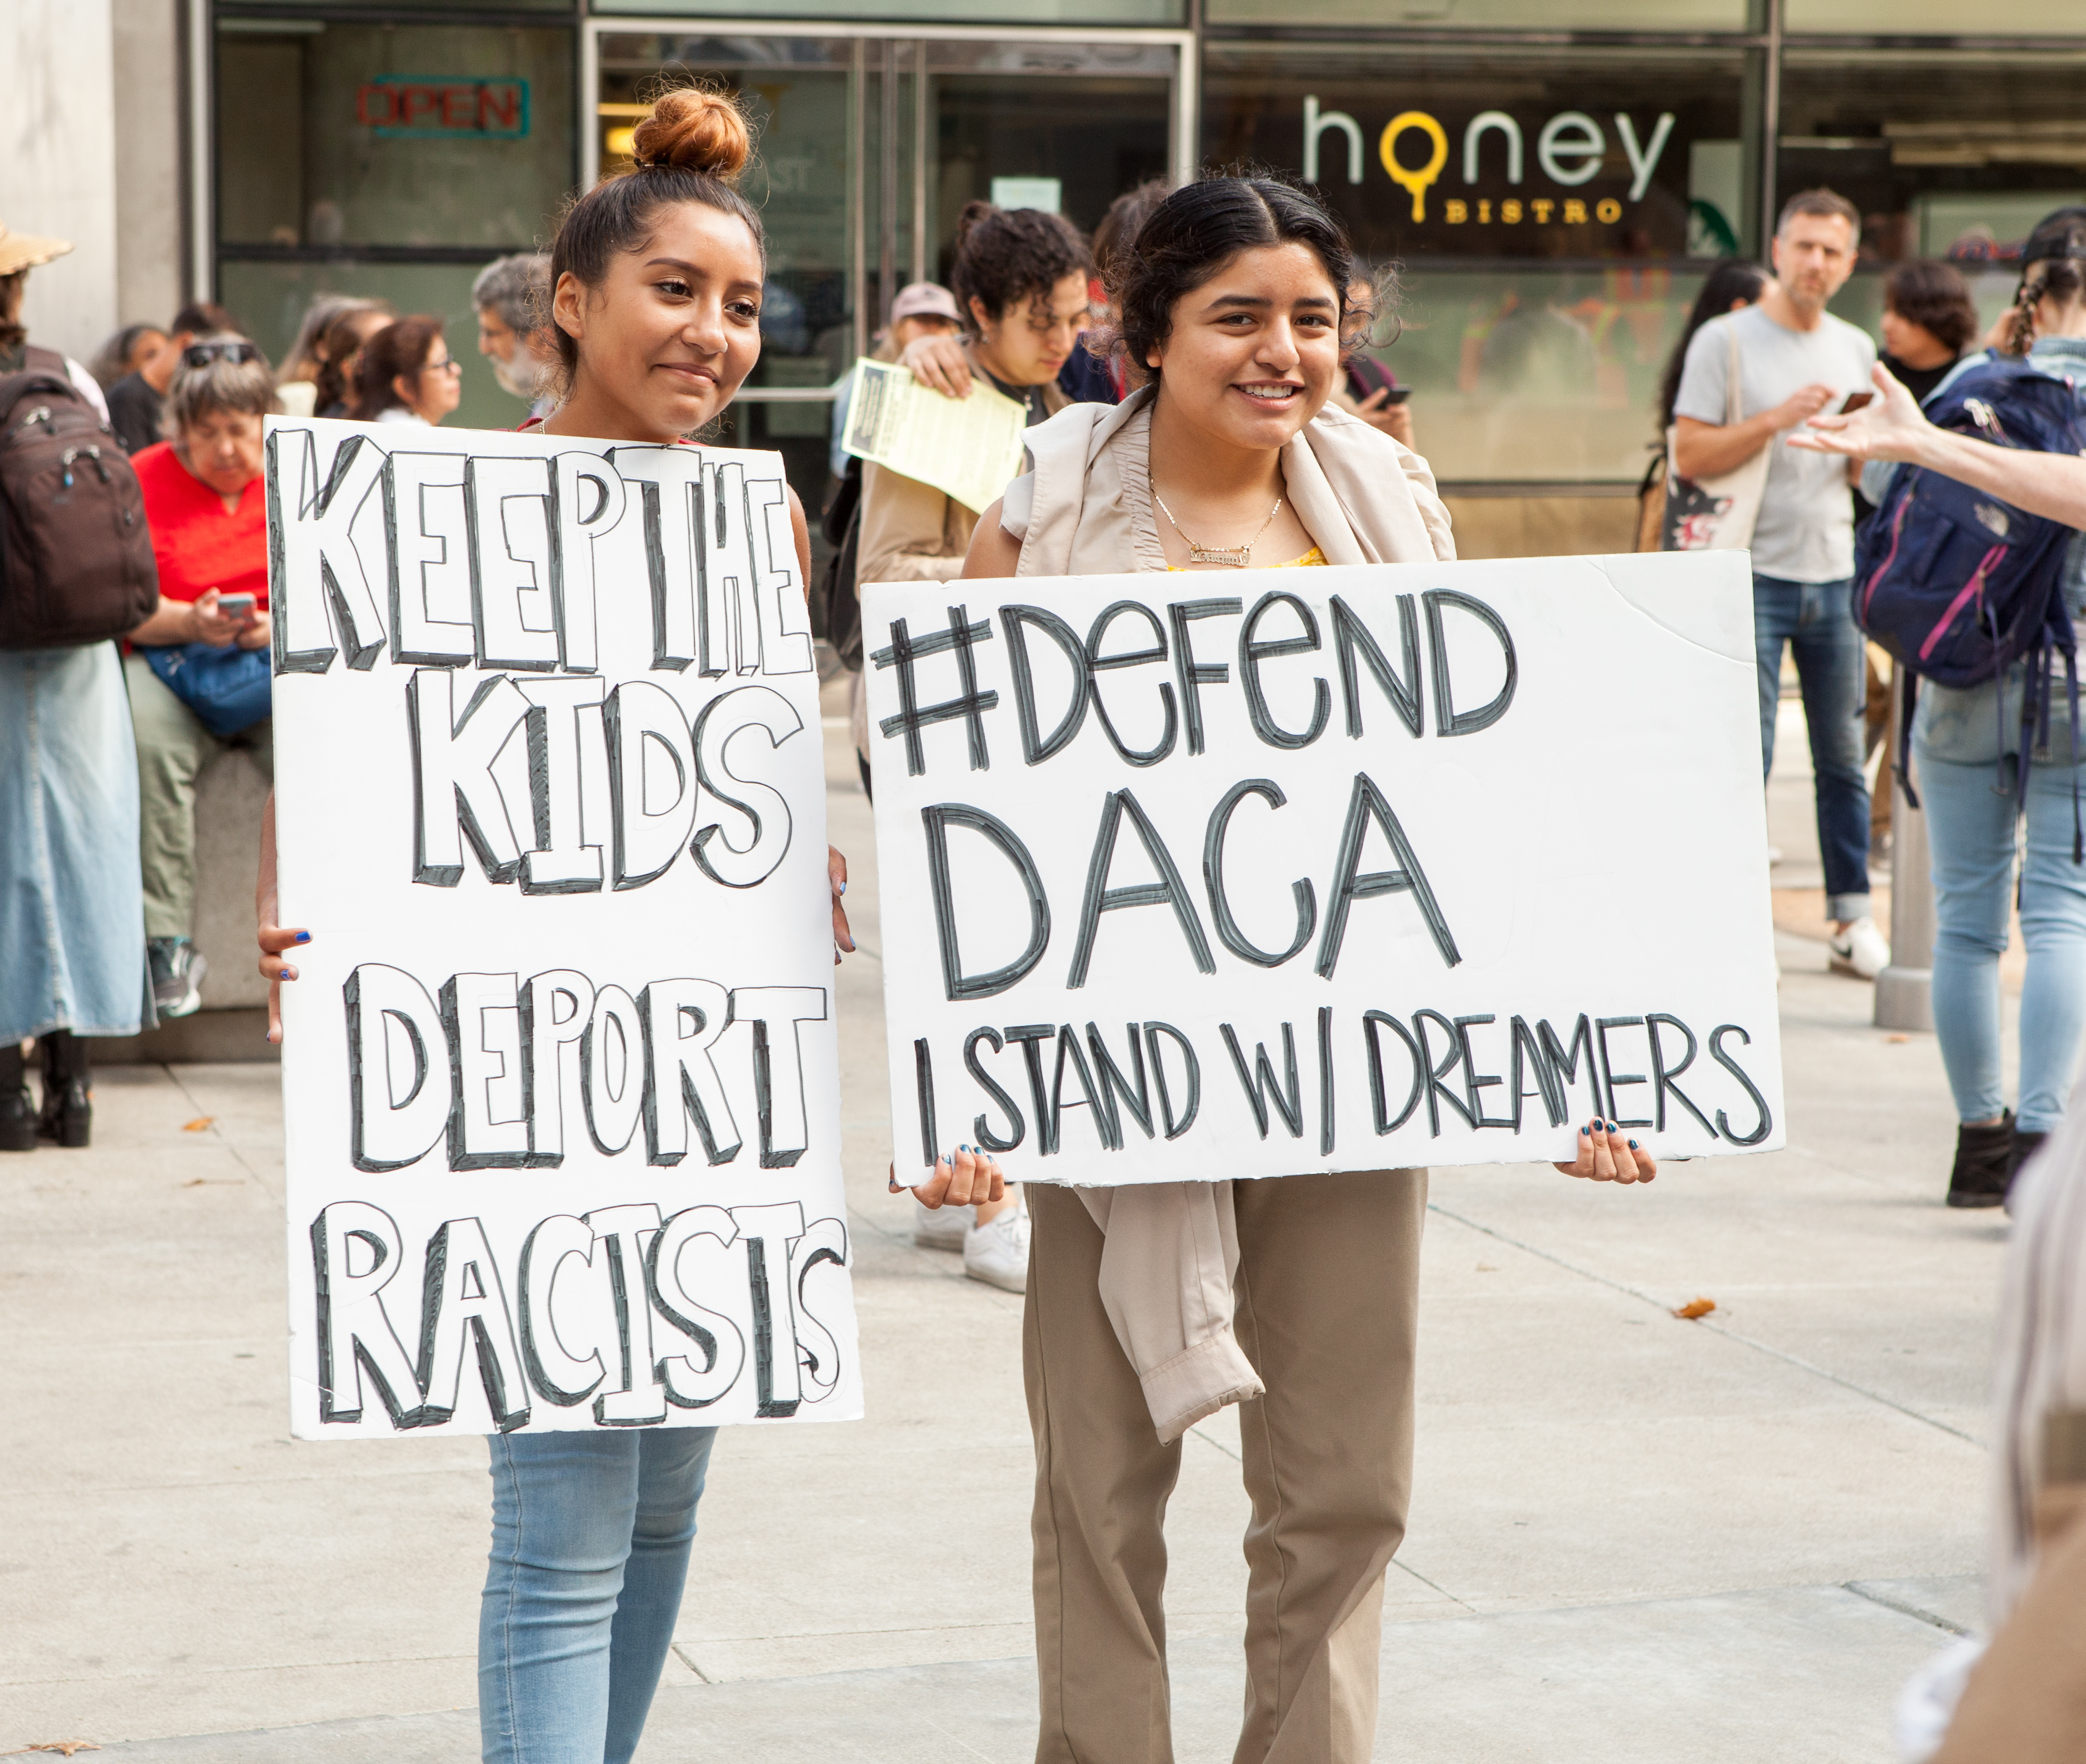 OPEN
honey
BISTRO
KEEP THE
KIDS
DEPORT
RACISTS
#DeFeND
DACA
I STAND W/ DREAMERS